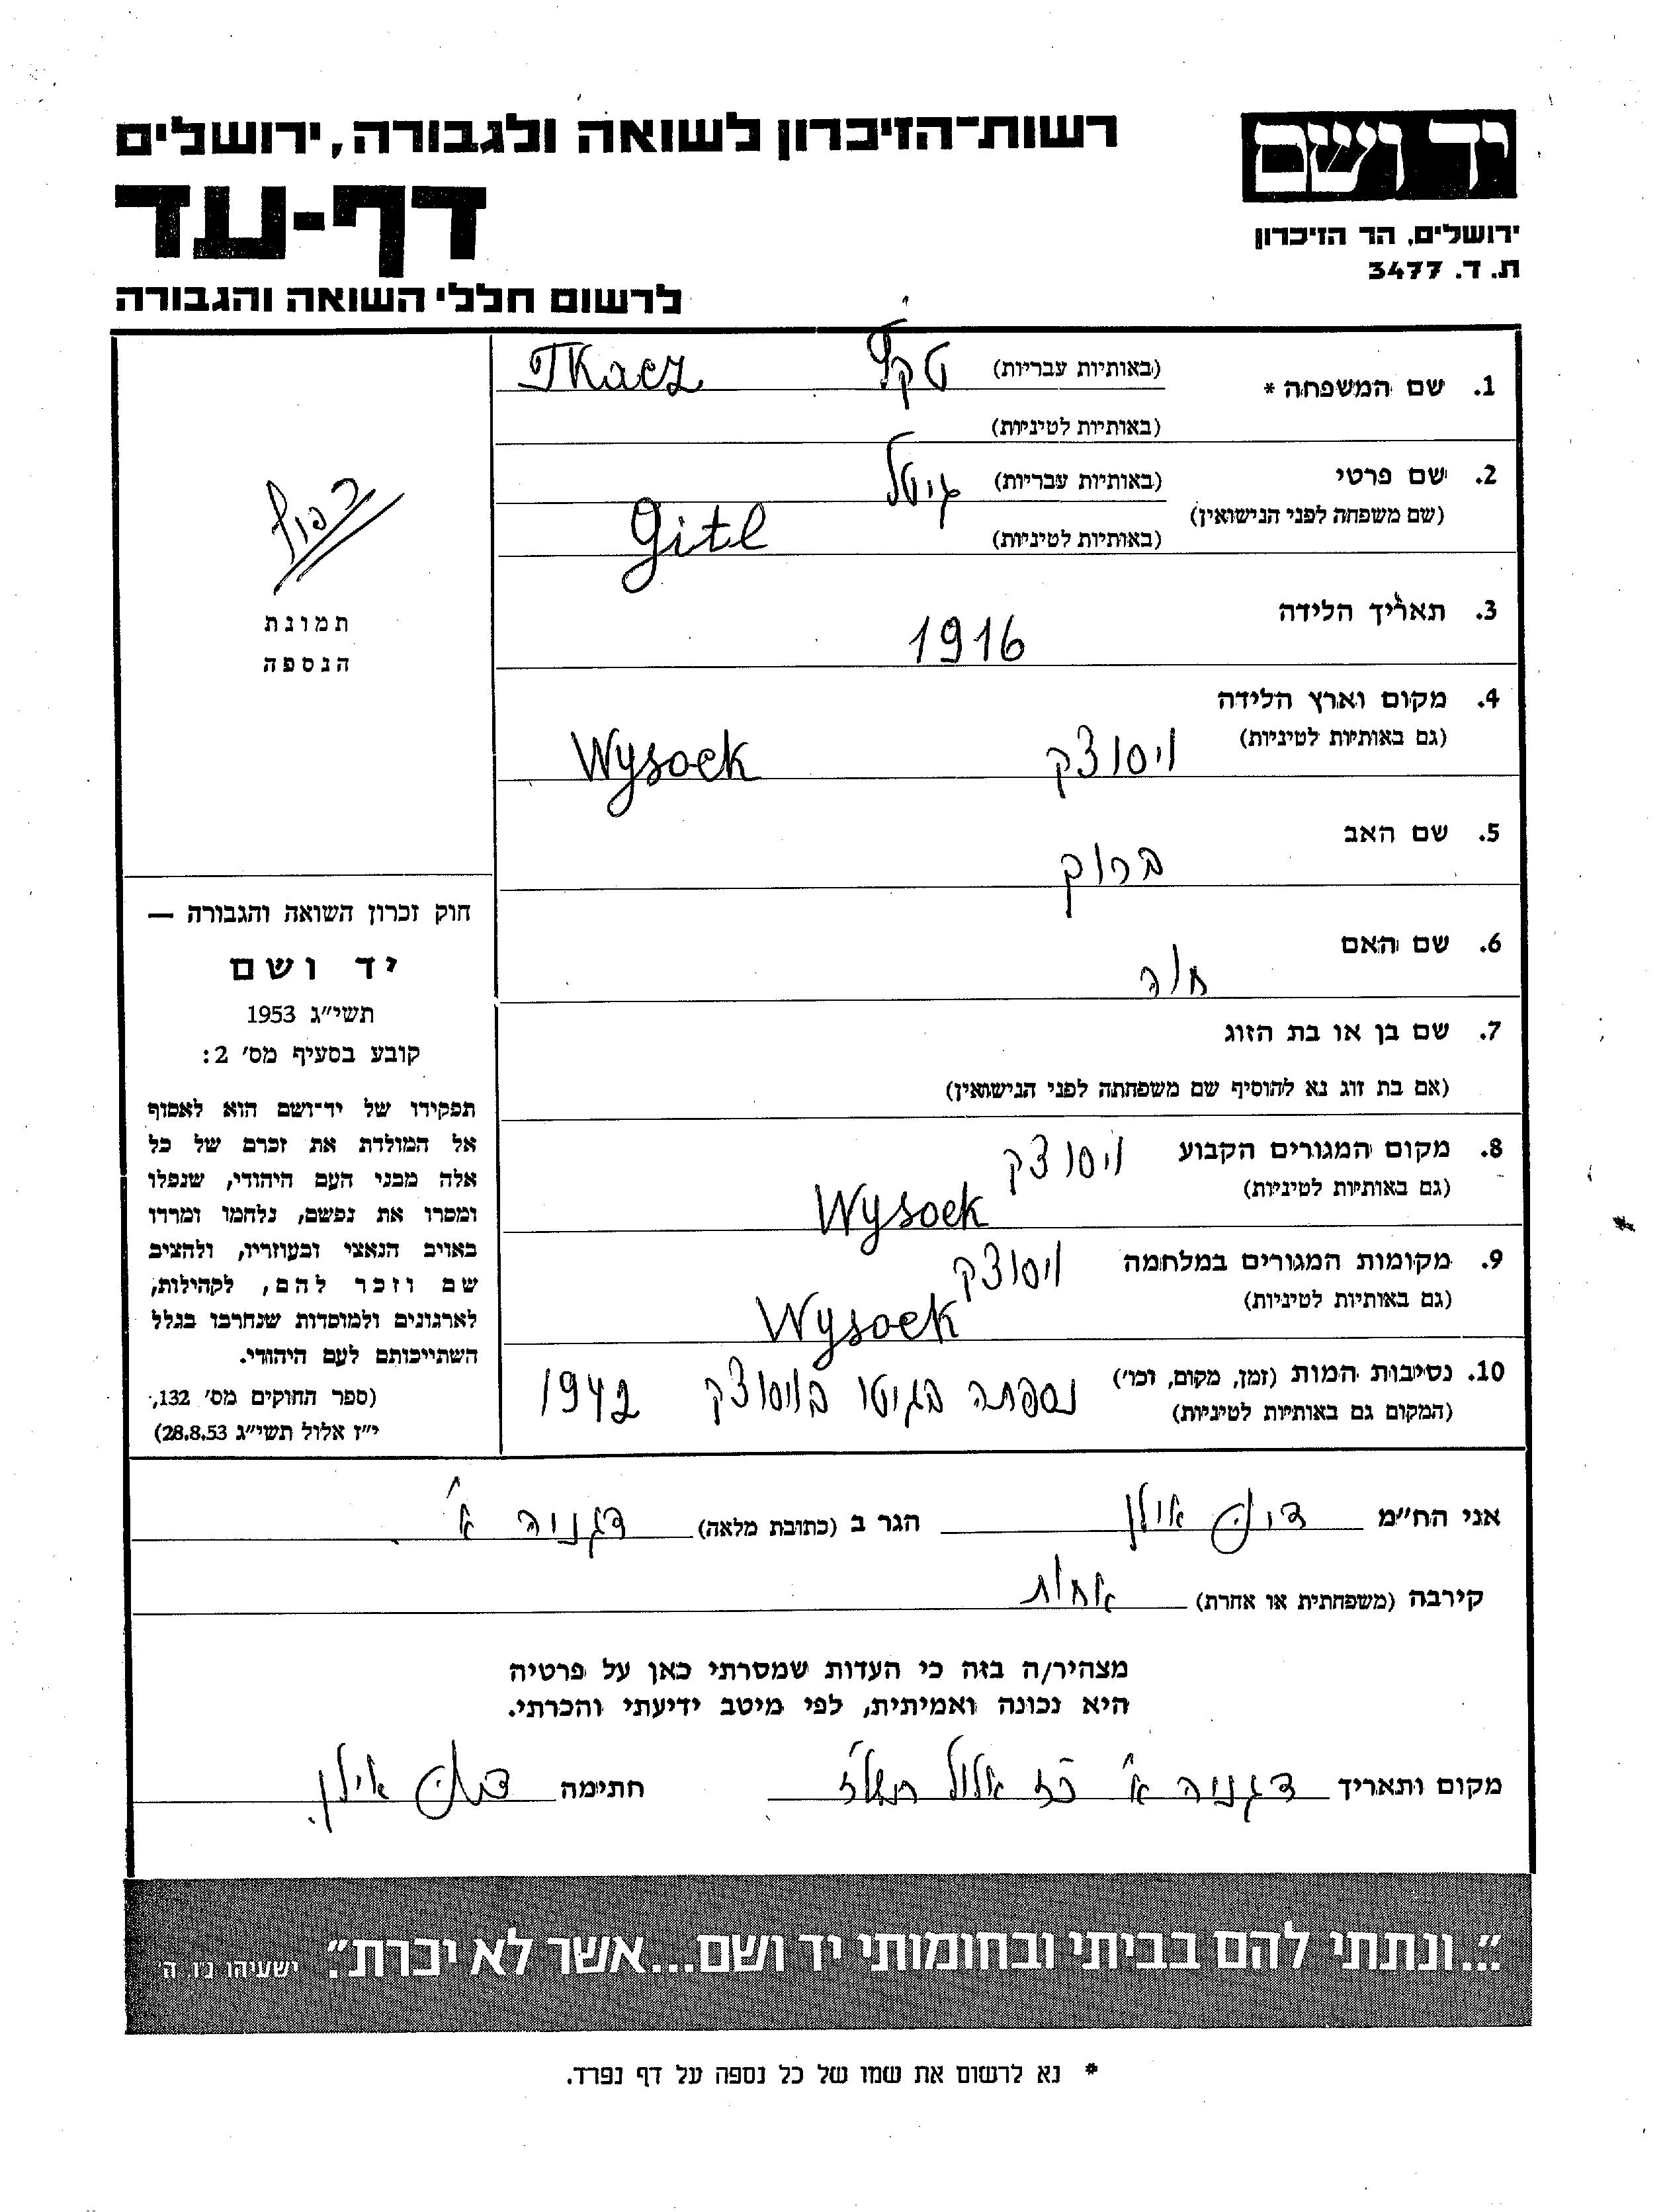 יד ושם
ירושלים, הר הזיכרון
ת. ד. 3477
רשות־הזיכרון לשואה ולגבורה, ירושלים
דף-עד
לרשום חללי השואה והגבורה
1. שם המשפחה * (באותיות עבריות) טקץ Tkacz
(באותיות לטיניות)
2. שם פרטי (באותיות עבריות) גיטל
(שם משפחה לפני הנישואין) (באותיות לטיניות) Gitl
3. תאריך הלידה 1916
4. מקום וארץ הלידה
(גם באותיות לטיניות) ויסוצק Wysock
5. שם האב ברוך
6. שם האם חוה
7. שם בן או בת הזוג
(אם בת זוג נא להוסיף שם משפחתה לפני הנישואין)
8. מקום המגורים הקבוע ויסוצק
(גם באותיות לטיניות) Wysock
9. מקומות המגורים במלחמה ויסוצק
(גם באותיות לטיניות) Wysock
10. נסיבות המות (זמן, מקום, וכו׳) נספתה בגיטו בויסוצק 1942
(המקום גם באותיות לטיניות)
תמונת
הנספה
חוק זכרון השואה והגבורה —
יד ושם
תשי״ג 1953
קובע בסעיף מס׳ 2:
תפקידו של יד־ושם הוא לאסוף
אל המולדת את זכרם של כל
אלה מבני העם היהודי, שנפלו
ומסרו את נפשם, נלחמו ומרדו
באויב הנאצי ובעוזריו, ולהציב
שם וזכר להם, לקהילות,
לארגונים ולמוסדות שנחרבו בגלל
השתייכותם לעם היהודי.
(ספר החוקים מס׳ 132,
י״ז אלול תשי״ג 28.8.53)
אני הח״מ אילן הגר ב (כתובת מלאה) דגניה א׳
קירבה (משפחתית או אחרת) אחות
מצהיר/ה בזה כי העדות שמסרתי כאן על פרטיה
היא נכונה ואמיתית, לפי מיטב ידיעתי והכרתי.
מקום ותאריך דגניה א׳ כז אלול תשל״ז חתימה אילן
״...ונתתי להם בביתי ובחומותי יד ושם...אשר לא יכרת״. ישעיהו נ״ו, ה׳
* נא לרשום את שמו של כל נספה על דף נפרד.